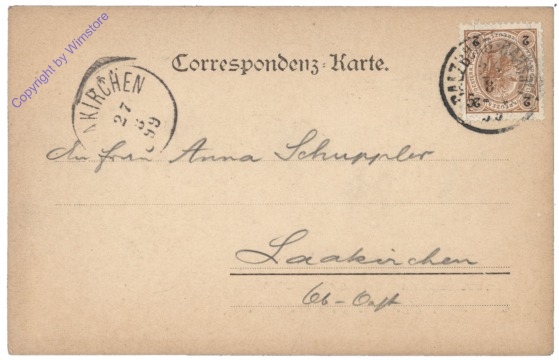 Copyright by Wimstore
Correspondenz-Karte.
AKIRCHEN
27
8
99
2 2
2 2
SALZBURG
99
An Frau Anna Schuppler
Laakirchen
Ob-Oest